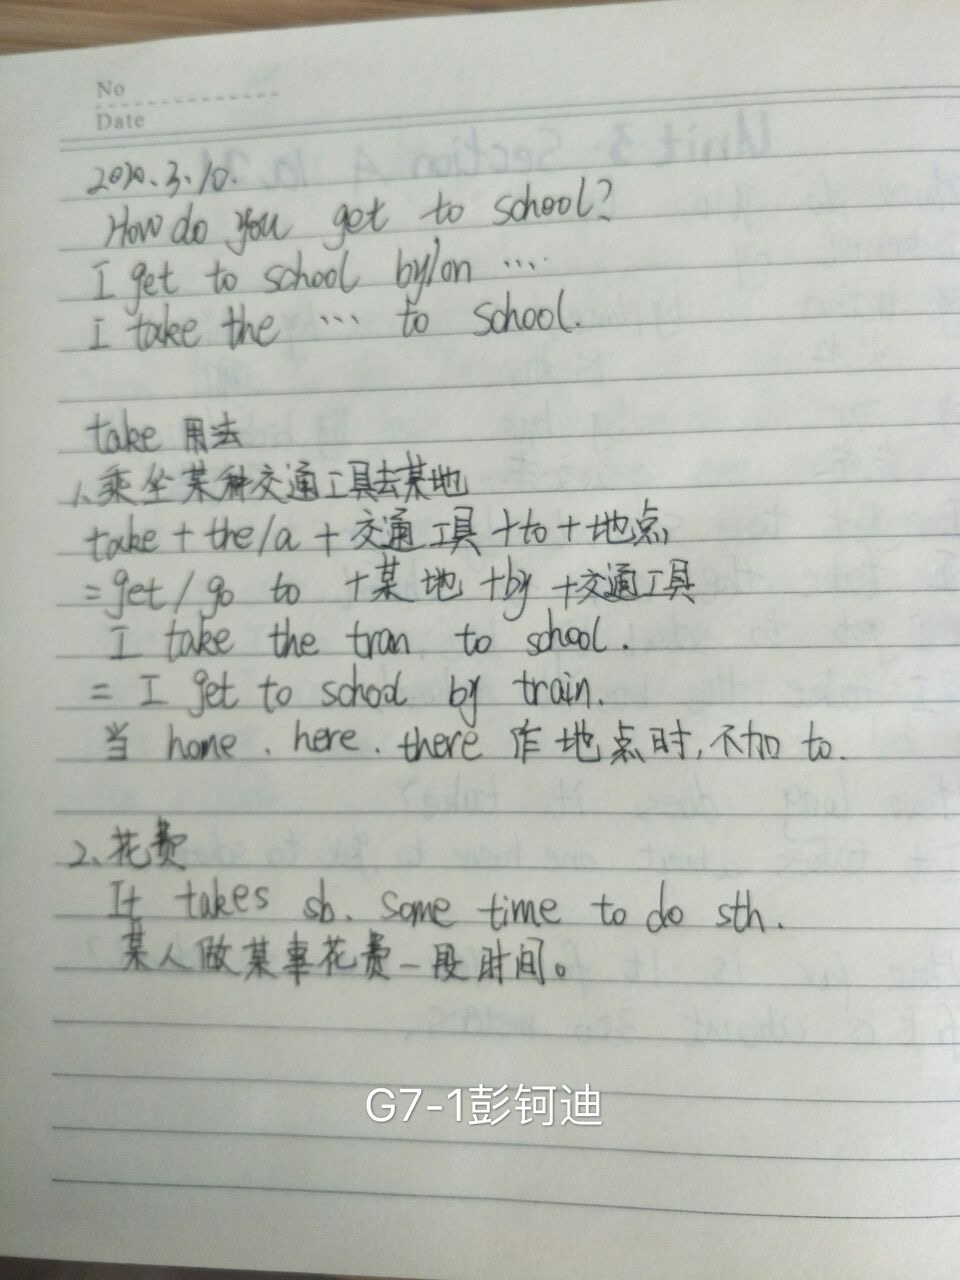 No
Date
2020.3.10.
How do you get to school?
I get to school by/on ....
I take the ... to school.
take 用法
1、乘坐某种交通工具去某地
take + the/a + 交通工具 + to + 地点
= get / go to + 某地 + by + 交通工具
I take the tran to school.
= I get to school by train.
当 home、here、there 作地点时,不加 to.
2、花费
It takes sb. some time to do sth.
某人做某事花费一段时间。
G7-1彭钶迪